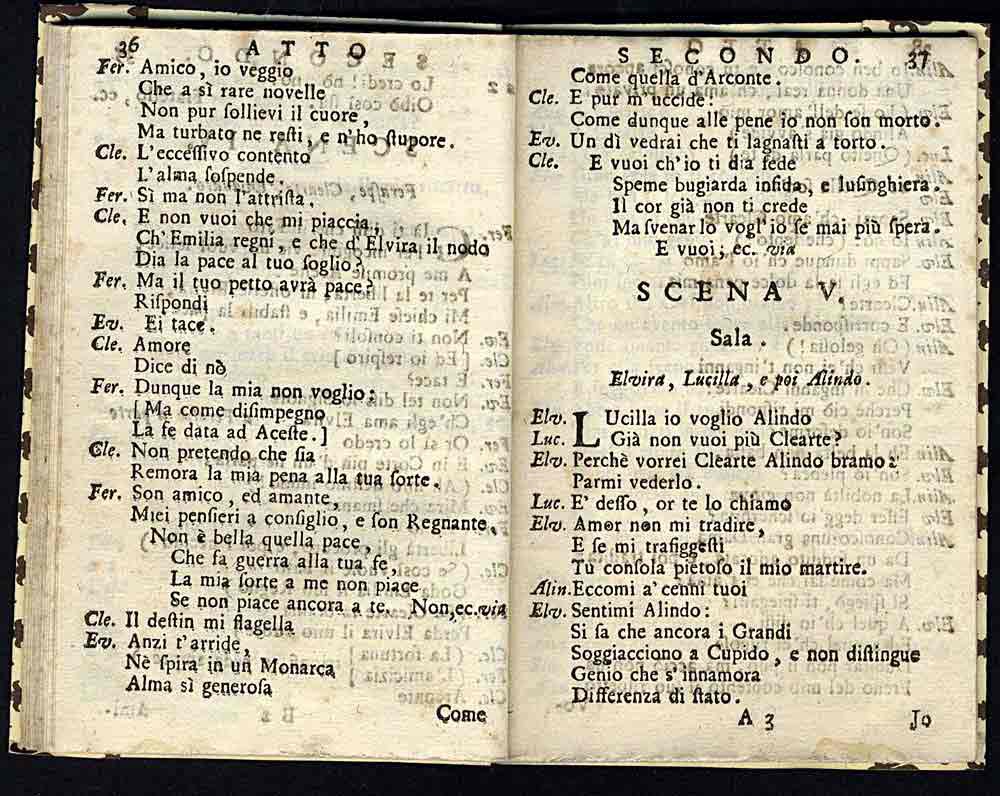 36 ATTO
Fer. Amico, io veggio
Che a sì rare novelle
Non pur ſollievi il cuore,
Ma turbato ne reſti, e n'ho ſtupore.
Cle. L'ecceſſivo contento
L'alma ſoſpende.
Fer. Sì ma non l'attriſta.
Cle. E non vuoi che mi piaccia,
Ch'Emilia regni, e che d'Elvira il nodo
Dia la pace al tuo ſoglio?
Fer. Ma il tuo petto avrà pace?
Riſpondi
Ev. Ei tace.
Cle. Amore
Dice di nò
Fer. Dunque la mia non voglio;
[Ma come diſimpegno
La fe data ad Aceſte.]
Cle. Non pretendo che ſia
Remora la mia pena alla tua ſorte.
Fer. Son amico, ed amante,
Miei penſieri a conſiglio, e ſon Regnante,
Non è bella quella pace,
Che fa guerra alla tua fe,
La mia ſorte a me non piace
Se non piace ancora a te. Non, ec. via
Cle. Il deſtin mi flagella
Ev. Anzi t'arride,
Nè ſpira in un Monarca
Alma sì generoſa
Come
SECONDO. 37
Come quella d'Arconte.
Cle. E pur m'uccide:
Come dunque alle pene io non ſon morto.
Ev. Un dì vedrai che ti lagnaſti a torto.
Cle. E vuoi ch'io ti dia fede
Speme bugiarda infida, e luſinghiera.
Il cor già non ti crede
Ma ſvenarlo vogl'io ſe mai più ſpera.
E vuoi; ec. via
SCENA V.
Sala.
Elvira, Lucilla, e poi Alindo.
Elv. LUcilla io voglio Alindo
Luc. Già non vuoi più Clearte?
Elv. Perchè vorrei Clearte Alindo bramo:
Parmi vederlo.
Luc. E' deſſo, or te lo chiamo
Elv. Amor non mi tradire,
E ſe mi trafiggeſti
Tu conſola pietoſo il mio martire.
Alin. Eccomi a' cenni tuoi
Elv. Sentimi Alindo:
Si ſa che ancora i Grandi
Soggiacciono a Cupido, e non diſtingue
Genio che s'innamora
Differenza di ſtato.
A 3 Io